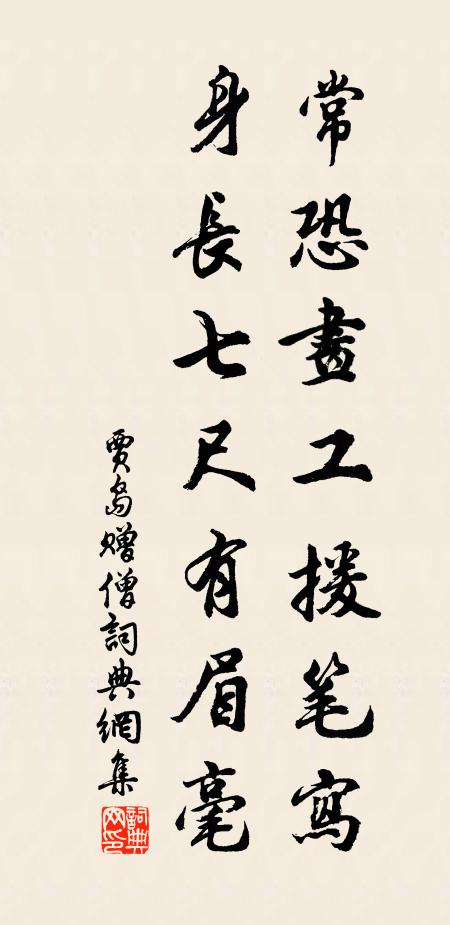 常恐畫工援笔寫
身長七尺有眉毫
賈島贈僧詞典網集
詞典网印